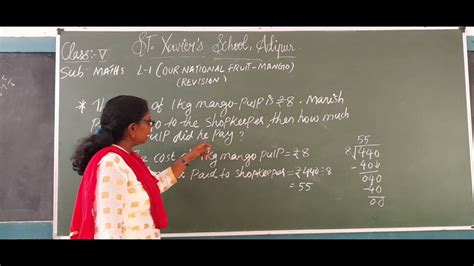 Class:-V
ST. Xavier's School, Adipur
Sub: MATHS L-1 (OUR NATIONAL FRUIT-MANGO)
(REVISION)
* of 1kg mango-pulp is ₹8. Manish
to the shopkeeper, then how much
pulp did he pay?
cost of 1kg mango pulp = ₹8
Paid to shopkeeper = ₹440÷8
= 55
55
8)440
-40↓
040
-40
00